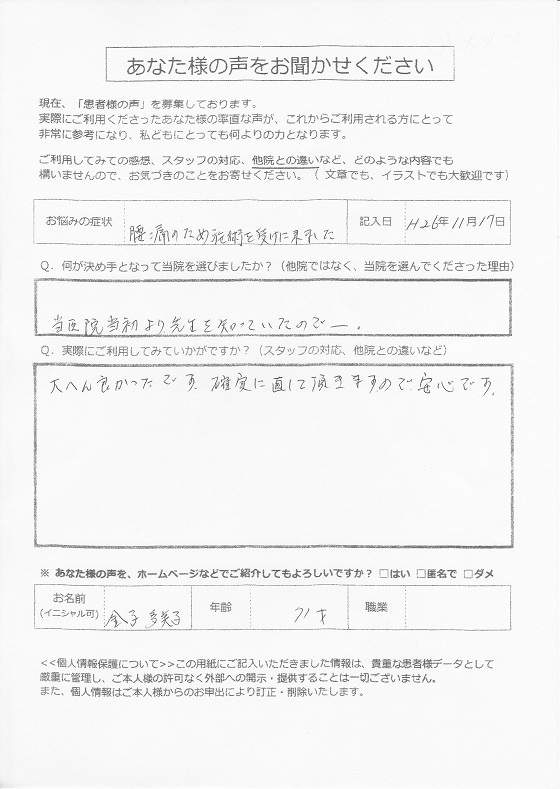 あなた様の声をお聞かせください
現在、「患者様の声」を募集しております。
実際にご利用くださったあなた様の率直な声が、これからご利用される方にとって
非常に参考になり、私どもにとっても何よりの力となります。
ご利用してみての感想、スタッフの対応、他院との違いなど、どのような内容でも
構いませんので、お気づきのことをお寄せください。（文章でも、イラストでも大歓迎です）
お悩みの症状 腰痛のため施術を受けに来ました 記入日 H26年11月17日
Q．何が決め手となって当院を選びましたか？（他院ではなく、当院を選んでくださった理由）
当医院当初より先生を知っていたのでー.
Q．実際にご利用してみていかがですか？（スタッフの対応、他院との違いなど）
大へん良かったです。確実に直して頂きますので安心です。
※ あなた様の声を、ホームページなどでご紹介してもよろしいですか？ □はい □匿名で □ダメ
お名前 金子 年齢 71才 職業
(イニシャル可)
<<個人情報保護について>>この用紙にご記入いただきました情報は、貴重な患者様データとして
厳重に管理し、ご本人様の許可なく外部への開示・提供することは一切ございません。
また、個人情報はご本人様からのお申出により訂正・削除いたします。